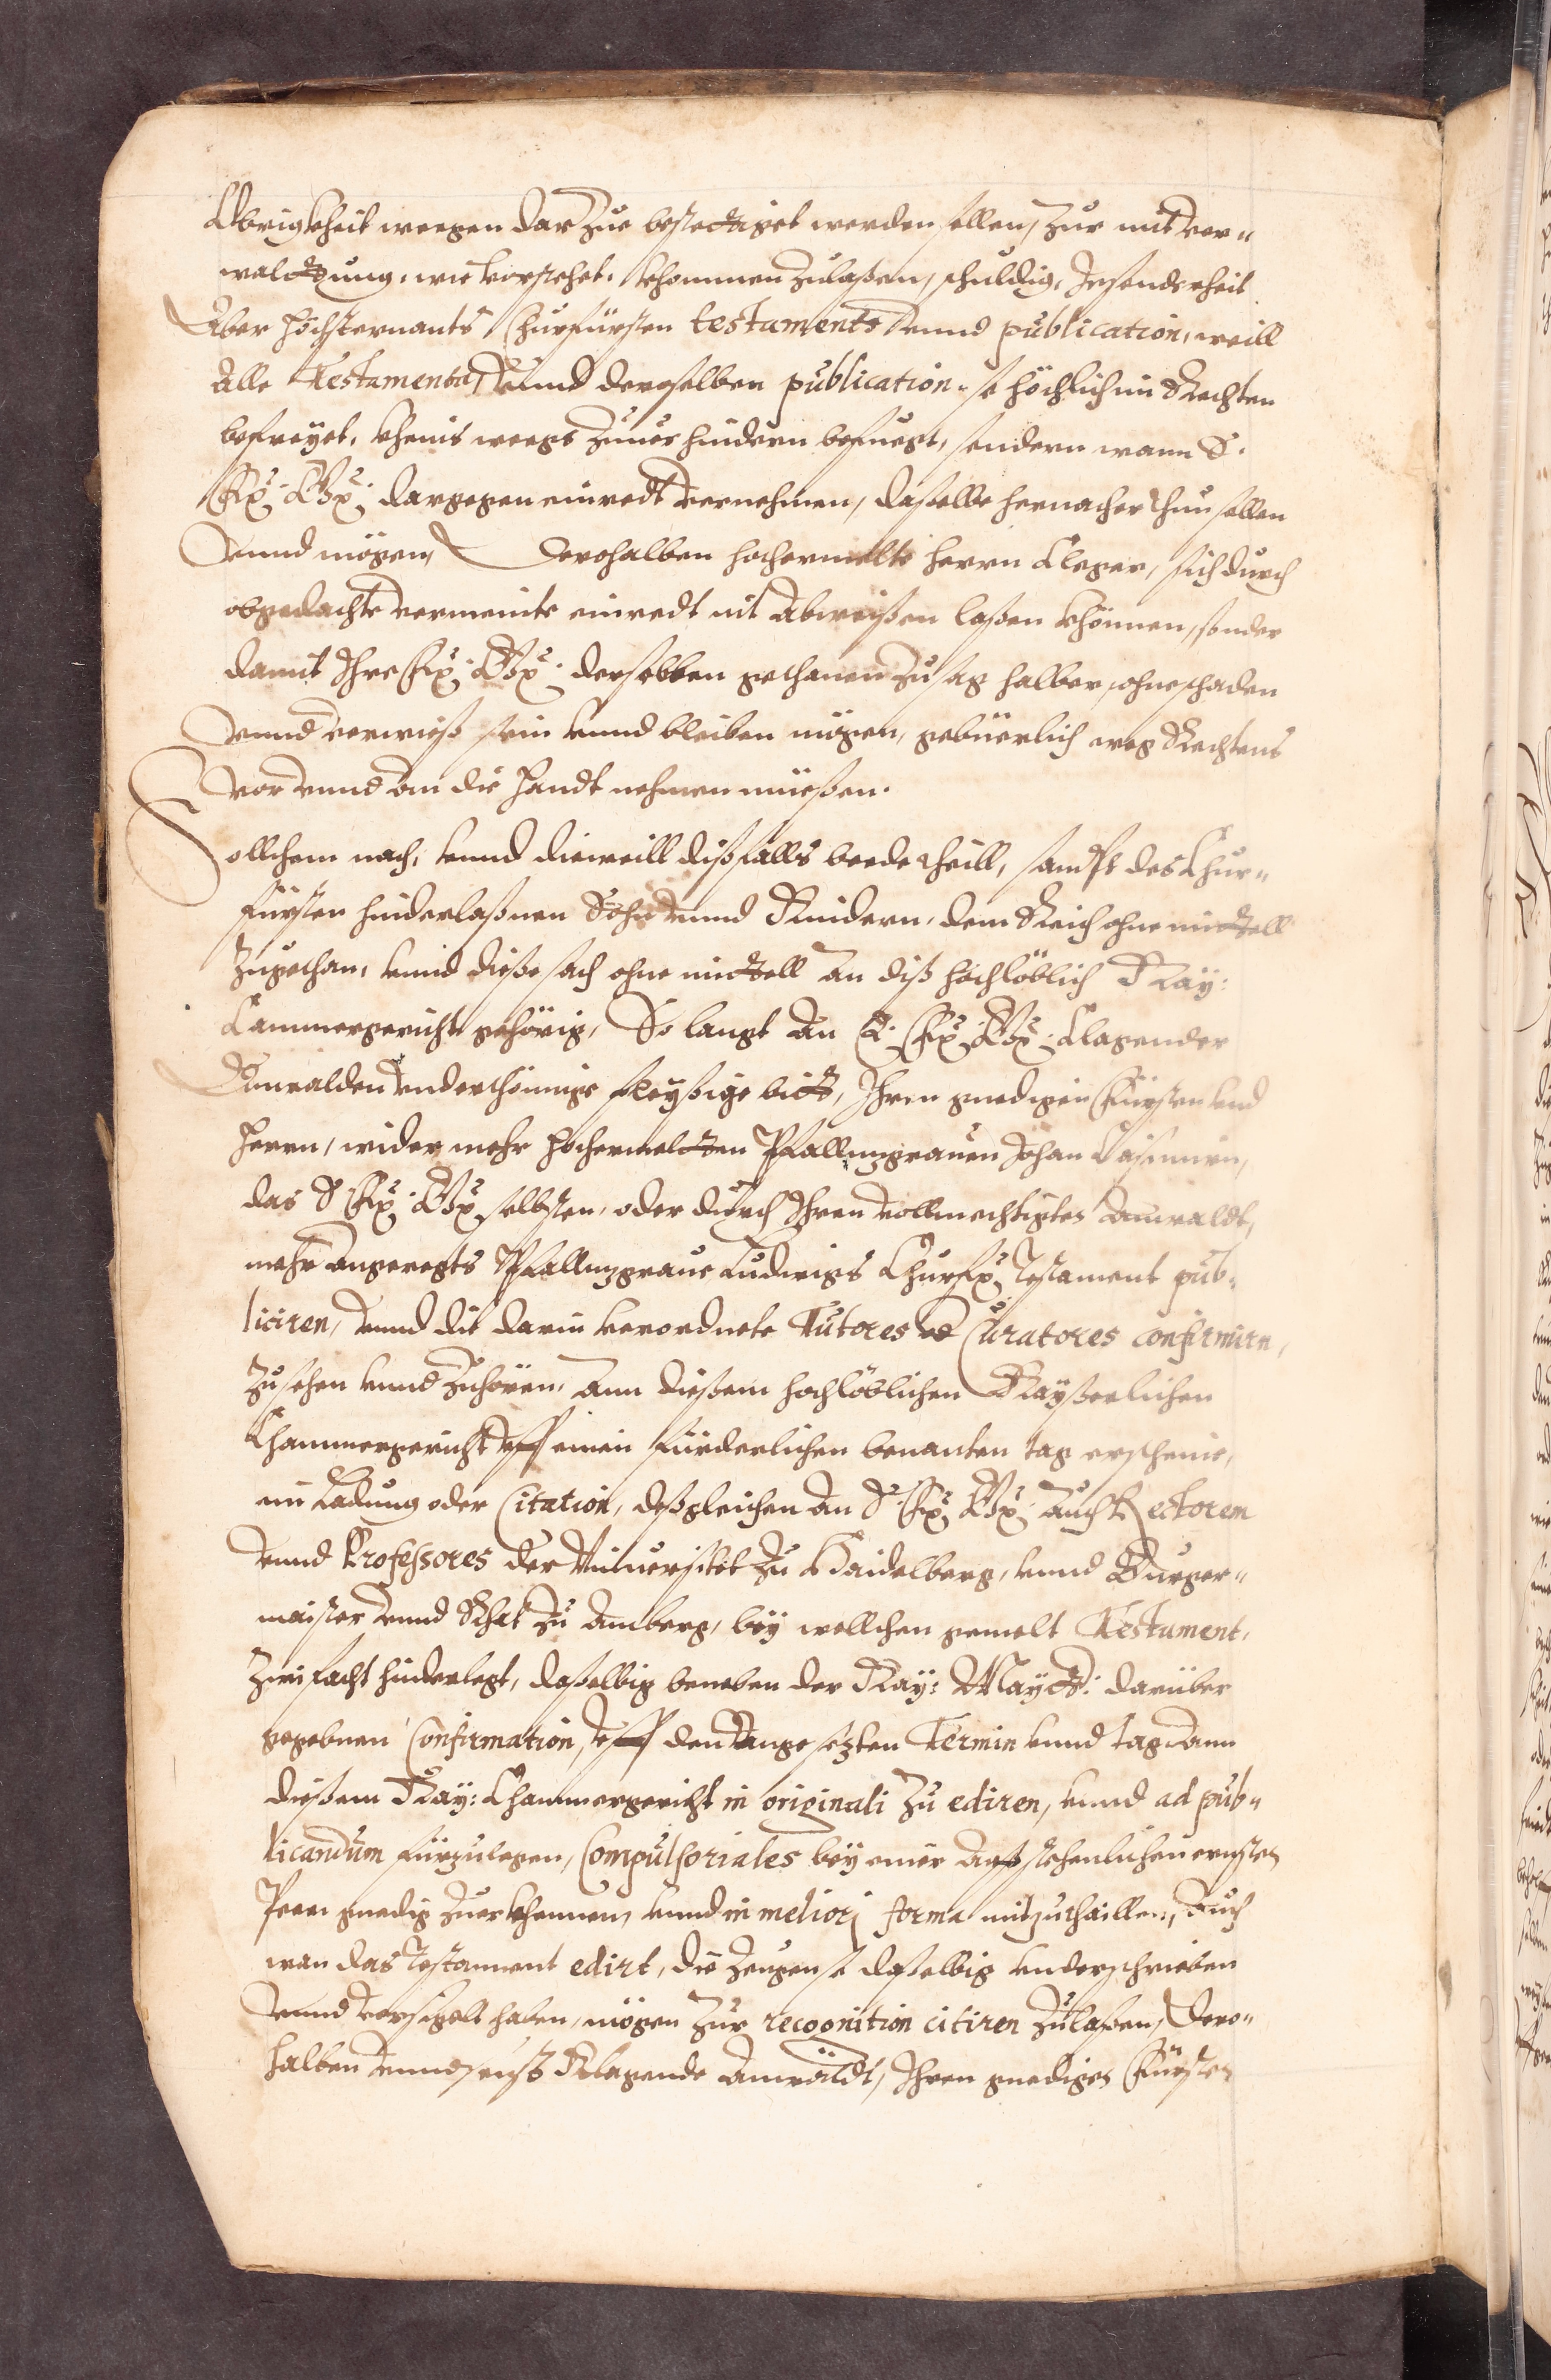 Obrigkheit wegen darzue bestettiget werden sollen, zur mit ver=
waltung, wie vorstehet, khommen zulaßen, schuldig, Insonderheit
Aber höchsternants Churfürsten testaments vnnd publication, weill
alle Testamenta, vnnd derselben publication, so höchlich im Rechten
befreyet, kheins weegs zuuerhindern befuegt, sondern wann S.
Fr: Gn: dargegen einredt vernehmen, daßelbe hernacher thun sollen
vnnd mögen, Derohalben hochermelte herrn Cleger, sich durch
obgedachte vermeinte einredt nit abweißen laßen khönnen, sonder
damit Ihre Fr: Gn: derselben gethanen zusag halber, ohne schaden
vnnd verweiß sein vnnd bleiben mögen, gebüerlich weg Rechtens
vor vnnd an die handt nehmen müeßen.
Sollchem nach, vnnd dieweill dißfalls beede theill, sampt des Chur=
fürsten hinderlaßnen Sohn vnnd Kindern, dem Reich ohne mittell
zugethan, vnnd dieße sach ohne mittell an diß hochlöblich Kay:
Cammergericht gehörig, So langt an E: Fr: Gn: Clagender
Anwalden vnderthönnige fleyßige bitt, Ihren gnedigen Fürsten vnd
herrn, wider mehr hochermelten Pfalltzgrauen Johan Casimirn,
das S: Fr: Gn: selbsten, oder durch Ihren vollmechtigten Anwaldt,
mehr angeregts Pfalltzgraue Ludwigs Churfr: Testament pub=
liciren, vnnd die darin verordnete Tutores et Curatores confirmirn,
zusehen vnnd zuhören, ann dießem hochlöblichen Kayßerlichen
Chammergericht vff einen fürderlichen benanten tag erscheine,
ein Ladung oder Citation, deßgleichen an S: Fr: Gn: auch Rectorem
vnnd Professores der Vniuersitet zu Haidelberg, vnnd Burger=
maister vnnd Rhat zu Amberg, bey wellchen gemelt Testament,
zwifacht hinderlegt, daßelbig beneben der Kay: Maytt: darüber
gegebnen Confirmation, vff den angesetzten Termin vnnd tag ann
dießem Kay: Chammergericht in originali zu ediren, vnnd ad pub=
licandum fürzulegen, Compulsoriales bey einer ernsten
Peen gnedig zuerkhennen, vnnd in meliori forma mitzuthaillen, Auch
wan das Testament edirt, die Zeugen so daßelbig vnderschrieben
vnnd versigelt haben, mögen zur recognition citiren zulaßen, Dero=
halben Klagende Anwäldt, Ihren gnedigen Fürsten